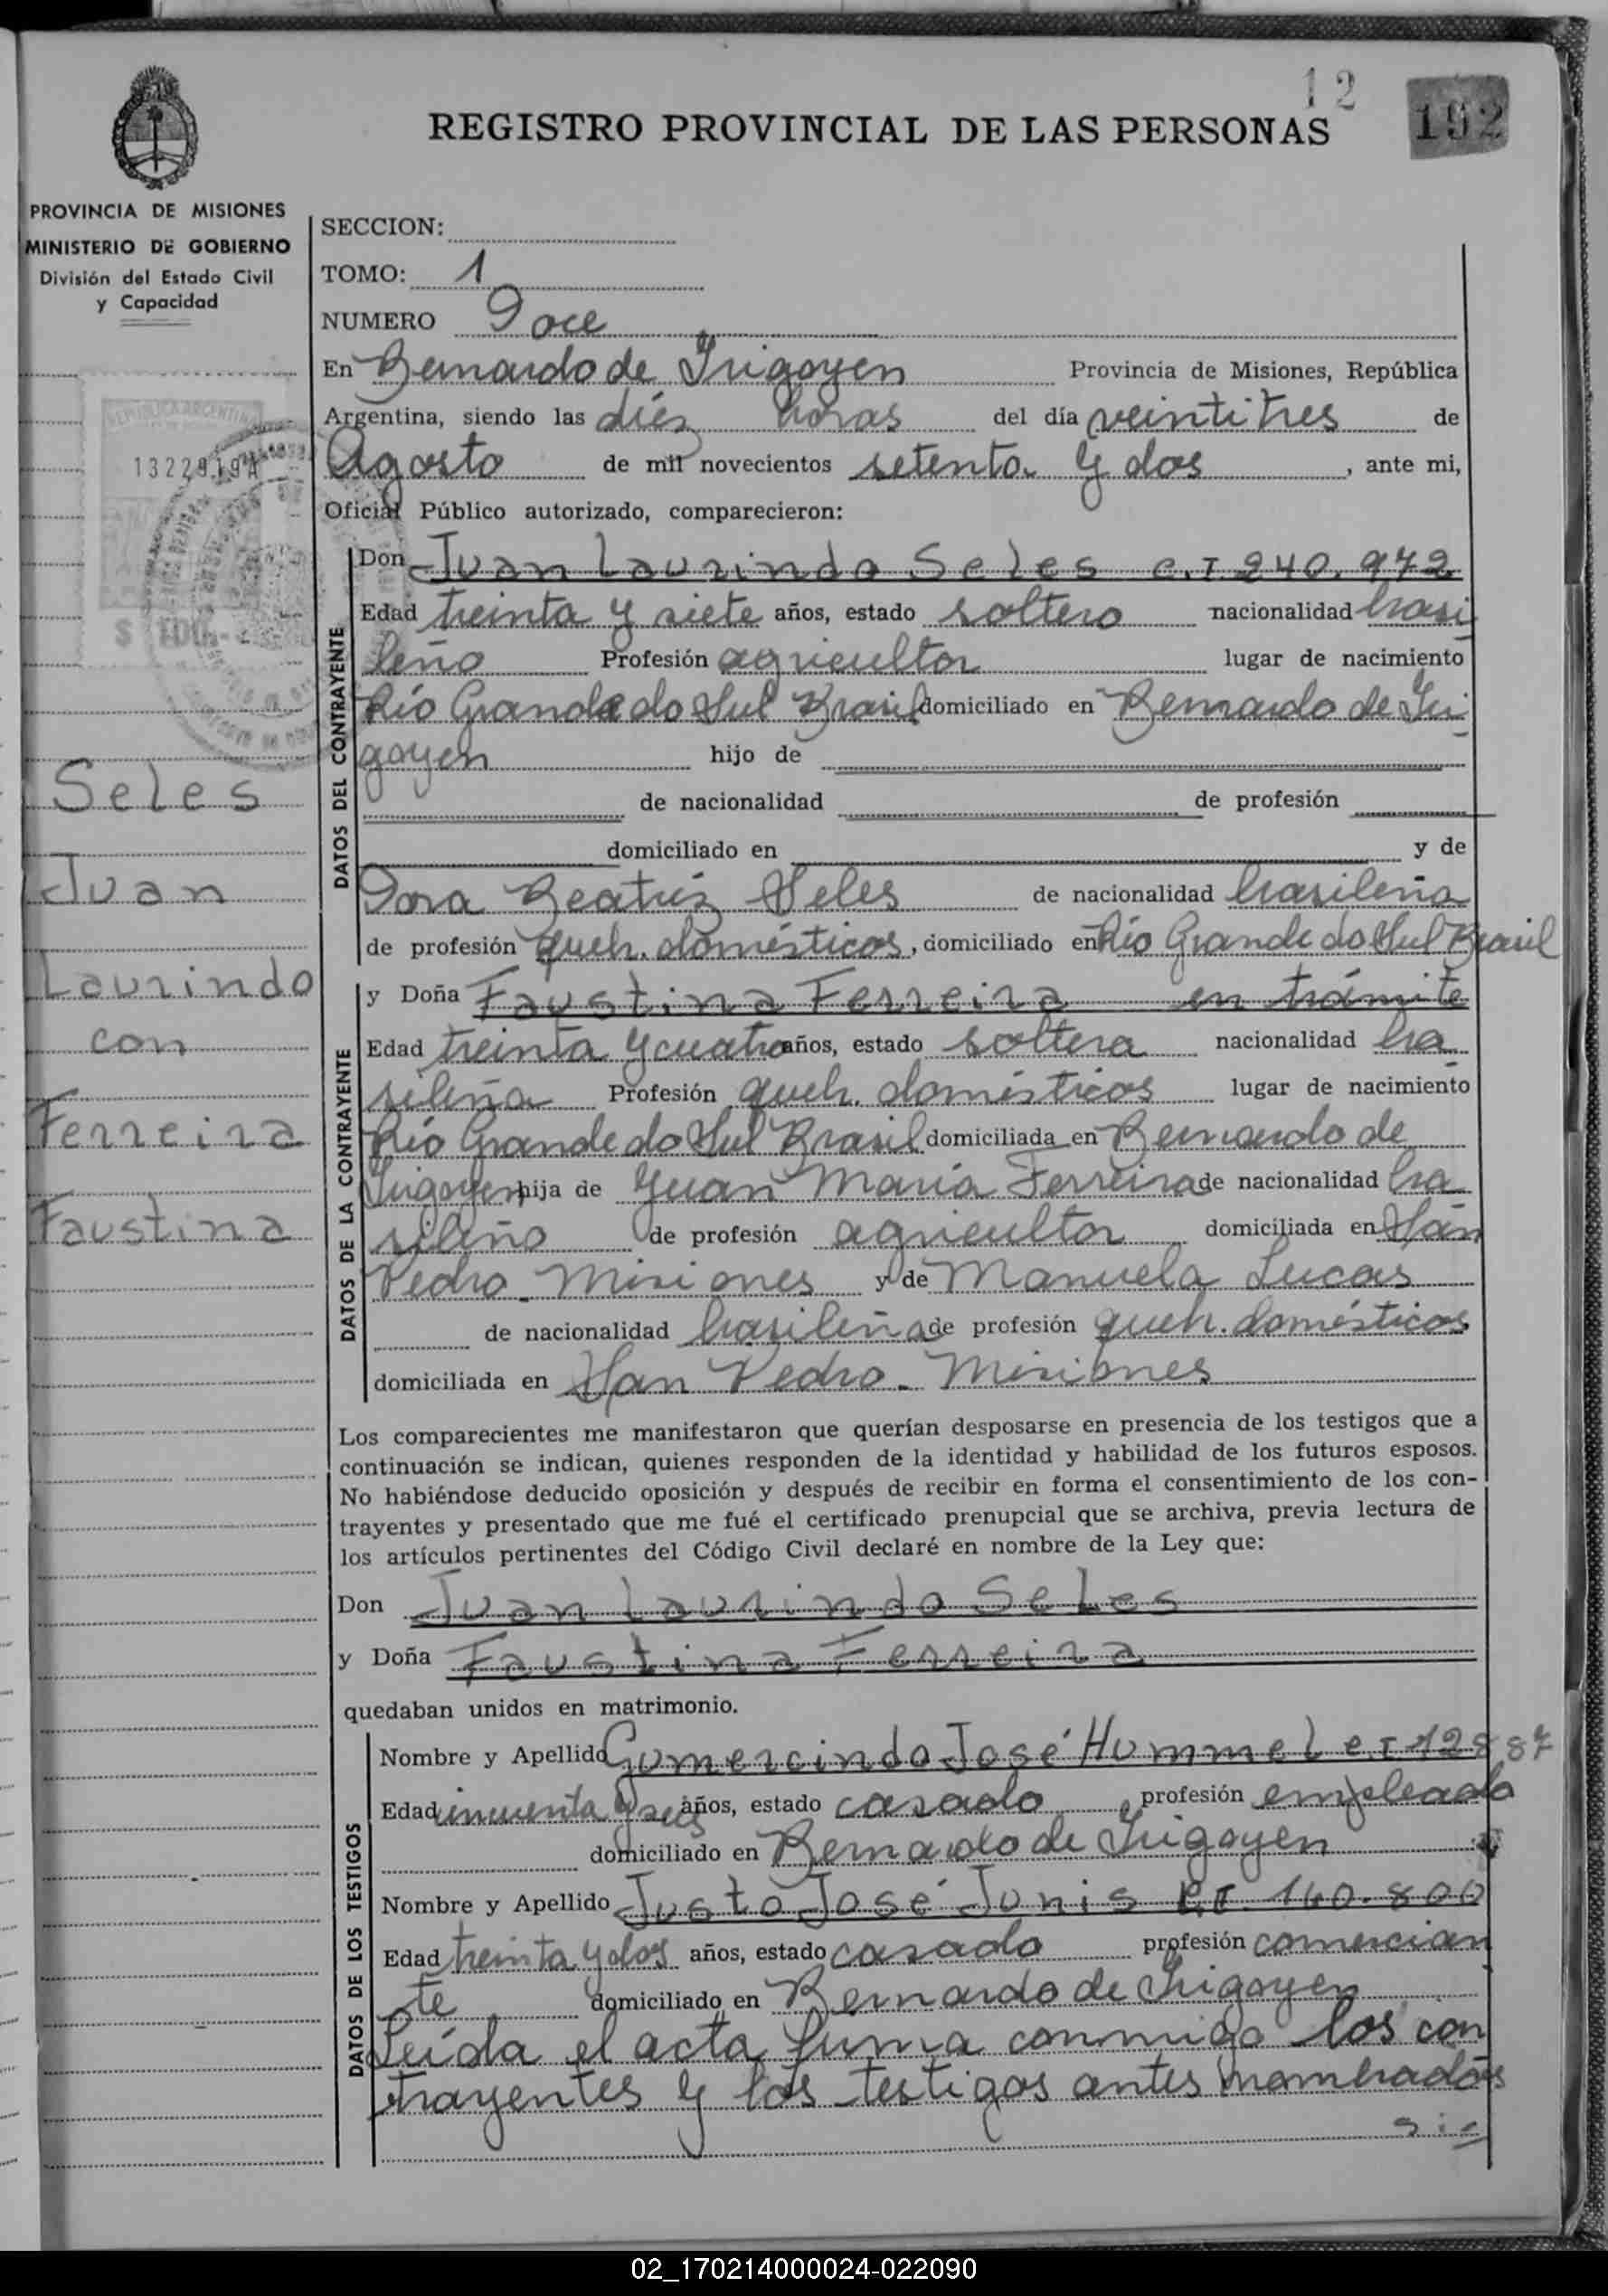 12
192
REGISTRO PROVINCIAL DE LAS PERSONAS
PROVINCIA DE MISIONES
MINISTERIO DE GOBIERNO
División del Estado Civil
y Capacidad
SECCION:
TOMO: 1
NUMERO Doce
En Bernardo de Irigoyen Provincia de Misiones, República
Argentina, siendo las diéz horas del día veintitres de
Agosto de mil novecientos setenta y dos, ante mi,
Oficial Público autorizado, comparecieron:
REPUBLICA ARGENTINA
1322919A
$ 100.-
DATOS DEL CONTRAYENTE
Don Juan Laurindo Seles C.I. 240.972
Edad treinta y siete años, estado soltero nacionalidad brasi
leño Profesión agricultor lugar de nacimiento
Río Grande do Sul Brasil domiciliado en Bernardo de Iri
goyen hijo de
de nacionalidad de profesión
domiciliado en y de
Dora Beatríz Seles de nacionalidad brasileña
de profesión queh. domésticos, domiciliado en Río Grande do Sul Brasil
Seles
Juan
Laurindo
con
Ferreira
Faustina
DATOS DE LA CONTRAYENTE
y Doña Faustina Ferreira en trámite
Edad treinta y cuatro años, estado soltera nacionalidad bra
sileña Profesión queh. domésticos lugar de nacimiento
Río Grande do Sul Brasil domiciliada en Bernardo de
Irigoyen hija de Juan María Ferreira de nacionalidad bra
sileño de profesión agricultor domiciliada en Sán
Pedro - Misiones y de Manuela Lucas
de nacionalidad brasileña de profesión queh. domésticos
domiciliada en San Pedro - Misiones
Los comparecientes me manifestaron que querían desposarse en presencia de los testigos que a
continuación se indican, quienes responden de la identidad y habilidad de los futuros esposos.
No habiéndose deducido oposición y después de recibir en forma el consentimiento de los con-
trayentes y presentado que me fué el certificado prenupcial que se archiva, previa lectura de
los artículos pertinentes del Código Civil declaré en nombre de la Ley que:
Don Juan Laurindo Seles
y Doña Faustina Ferreira
quedaban unidos en matrimonio.
DATOS DE LOS TESTIGOS
Nombre y Apellido Gumercindo José Hummel C.I.
Edad incuenta y seis años, estado casado profesión empleado
domiciliado en Bernardo de Irigoyen
Nombre y Apellido Justo José Junis C.I. 140.800
Edad treinta y dos años, estado casado profesión comercian
te domiciliado en Bernardo de Irigoyen
Leída el acta firma conmigo los con
trayentes y los testigos antes mombrados
sig
02_170214000024-022090